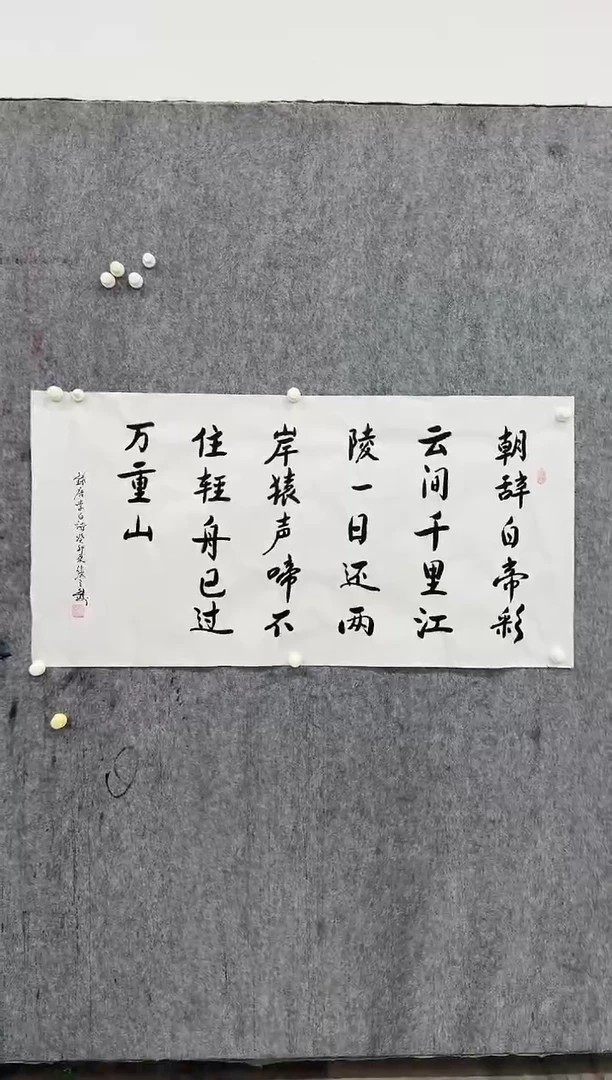 朝辞白帝彩
云间千里江
陵一日还两
岸猿声啼不
住轻舟已过
万重山
录唐李白诗癸卯夏